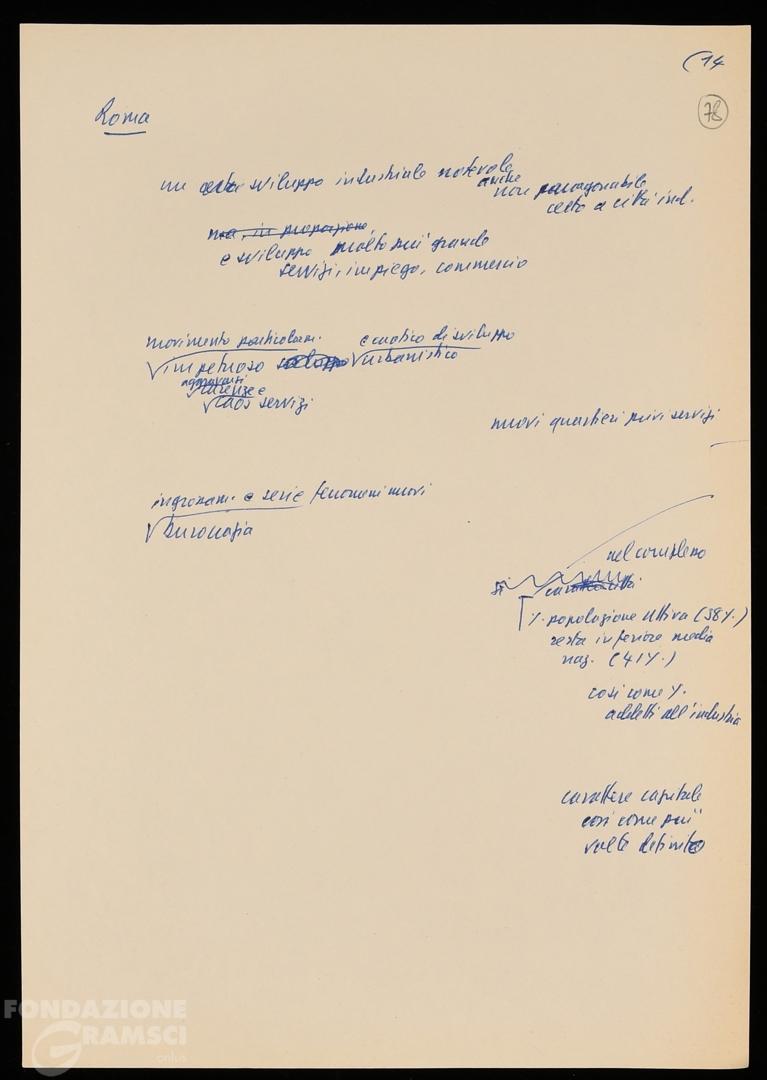 (14
78
Roma
un certo sviluppo industriale notevole
anche
non paragonabile
certo a città ind.
ma, in proporzione
e sviluppo molto più grande
servizi, impiego, commercio
movimento particolarm. caotico di sviluppo
impetuoso urbanistico
aggravarsi
carenze e
caos servizi
nuovi quartieri privi servizi
ingrossam. e serie fenomeni nuovi
burocrazia
nel complesso
si
% popolazione attiva (38%)
resta inferiore media
naz. (41%)
così come %
addetti all'industria
carattere capitale
così come più
volte definito
FONDAZIONE
GRAMSCI
onlus